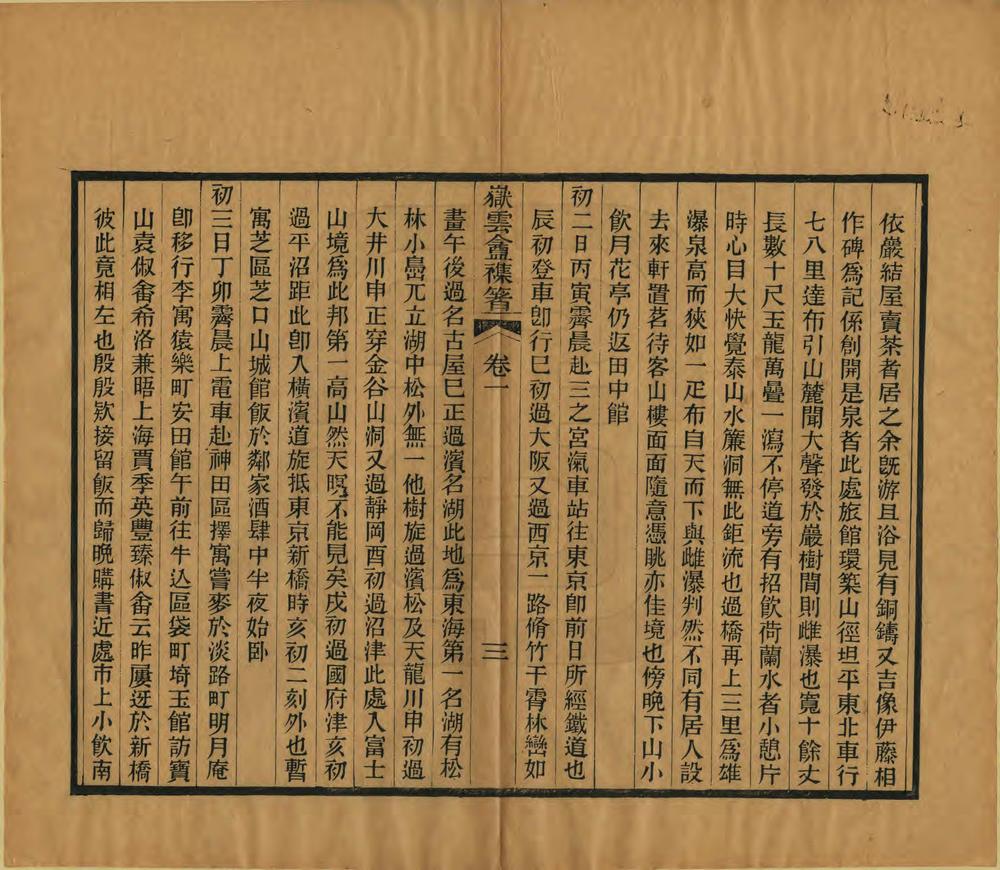 依巖結屋賣茶者居之余旣游且浴見有銅鑄又吉像伊藤相
作碑爲記係創開是泉者此處旅館環築山徑坦平東北車行
七八里達布引山麓聞大聲發於巖樹間則雌瀑也寬十餘丈
長數十尺玉龍萬疊一瀉不停道旁有招飲荷蘭水者小憩片
時心目大快覺泰山水簾洞無此鉅流也過橋再上三里爲雄
瀑泉高而狹如一疋布自天而下與雌瀑判然不同有居人設
去來軒置茗待客山樓面面隨意憑眺亦佳境也傍晚下山小
飲月花亭仍返田中館
初二日丙寅霽晨赴三之宮滊車站往東京卽前日所經鐵道也
辰初登車卽行巳初過大阪又過西京一路脩竹干霄林巒如
嶽雲盦襍箸 卷一 三
畫午後過名古屋巳正過濱名湖此地爲東海第一名湖有松
林小島兀立湖中松外無一他樹旋過濱松及天龍川申初過
大井川申正穿金谷山洞又過靜岡酉初過沼津此處入富士
山境爲此邦第一高山然天暝不能見矣戌初過國府津亥初
過平沼距此卽入橫濱道旋抵東京新橋時亥初二刻外也暫
寓芝區芝口山城館飯於鄰家酒肆中半夜始卧
初三日丁卯霽晨上電車赴神田區擇寓嘗麥於淡路町明月庵
卽移行李寓猿樂町安田館午前往牛込區袋町埼玉館訪寶
山袁俶畬希洛兼晤上海賈季英豐臻俶畬云昨屢迓於新橋
彼此竟相左也殷殷欵接留飯而歸晚購書近處市上小飲南